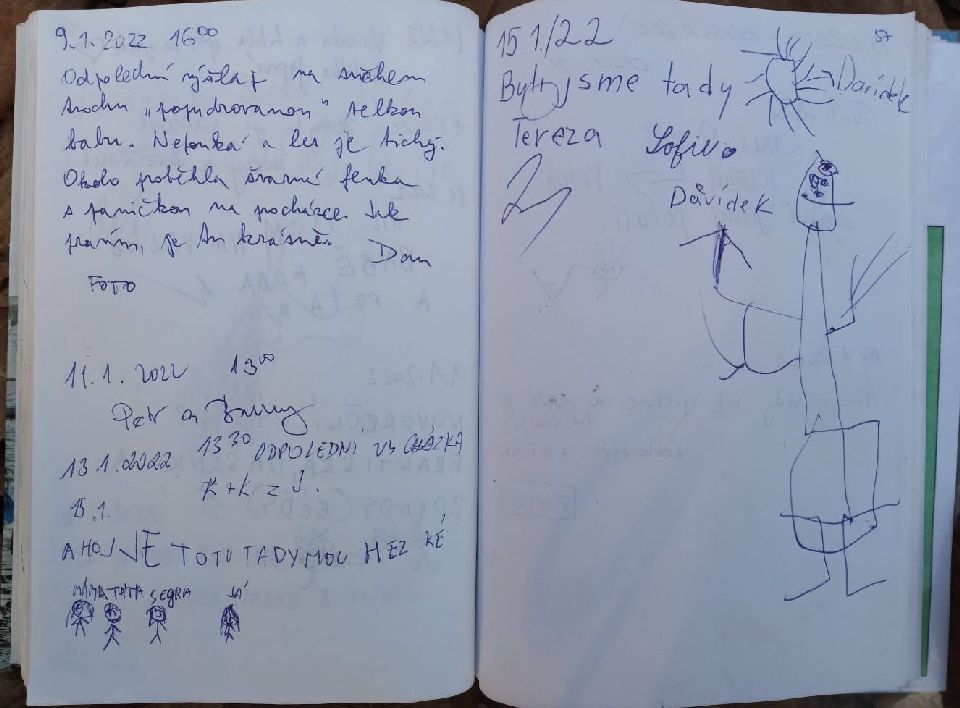 9.1.2022 16⁰⁰
Odpolední výšlap na sněhem
trochu „popudrovanou" velkou
babu. Nefouká a les je tichý.
Okolo proběhla švarná fenka
s paničkou na procházce. Jak
pravím, je tu krásně. Dan
FOTO
11.1.2022 13⁰⁰
Petr a
13.1.2022 13³⁰ ODPOLEDNÍ
K+K z J.
15.1.
AHOJ JE TOTU TADY MOC HEZKÉ
MÁMA TÁTA SEGRA JÁ
15.1/22
57
Byli jsme tady
Davídek
Tereza
Davídek